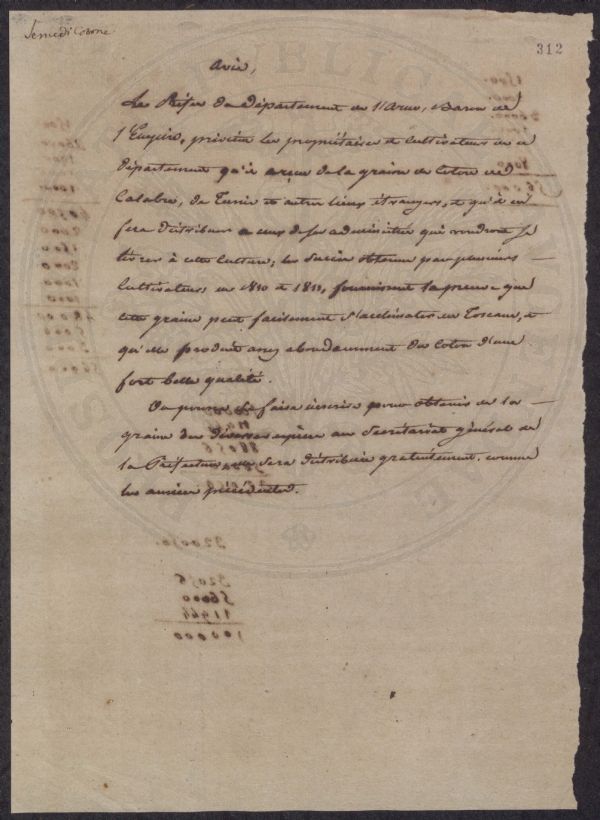 Semi di Cotone
312
Avis,
Le Préfet du département de l'Arno, Baron de
l'Empire, prévient les propriétaires et cultivateurs de ce
département qu'il a reçu de la graine de Coton de
Calabre, de Tunis et autres lieux étrangers, et qu'il en
fera distribuer à ceux de ses administrés qui voudront se
livrer à cette culture; les succès obtenus par plusieurs
cultivateurs en 1810 et 1811, fournissent la preuve que
cette graine peut facilement s'acclimater en Toscane, et
qu'elle produit assez abondamment du coton d'une
fort belle qualité.
On pourra se faire inscrire pour obtenir de la
graine des diverses espèces au Secrétariat général de
la Préfecture sera distribuée gratuitement, comme
les années précédentes.